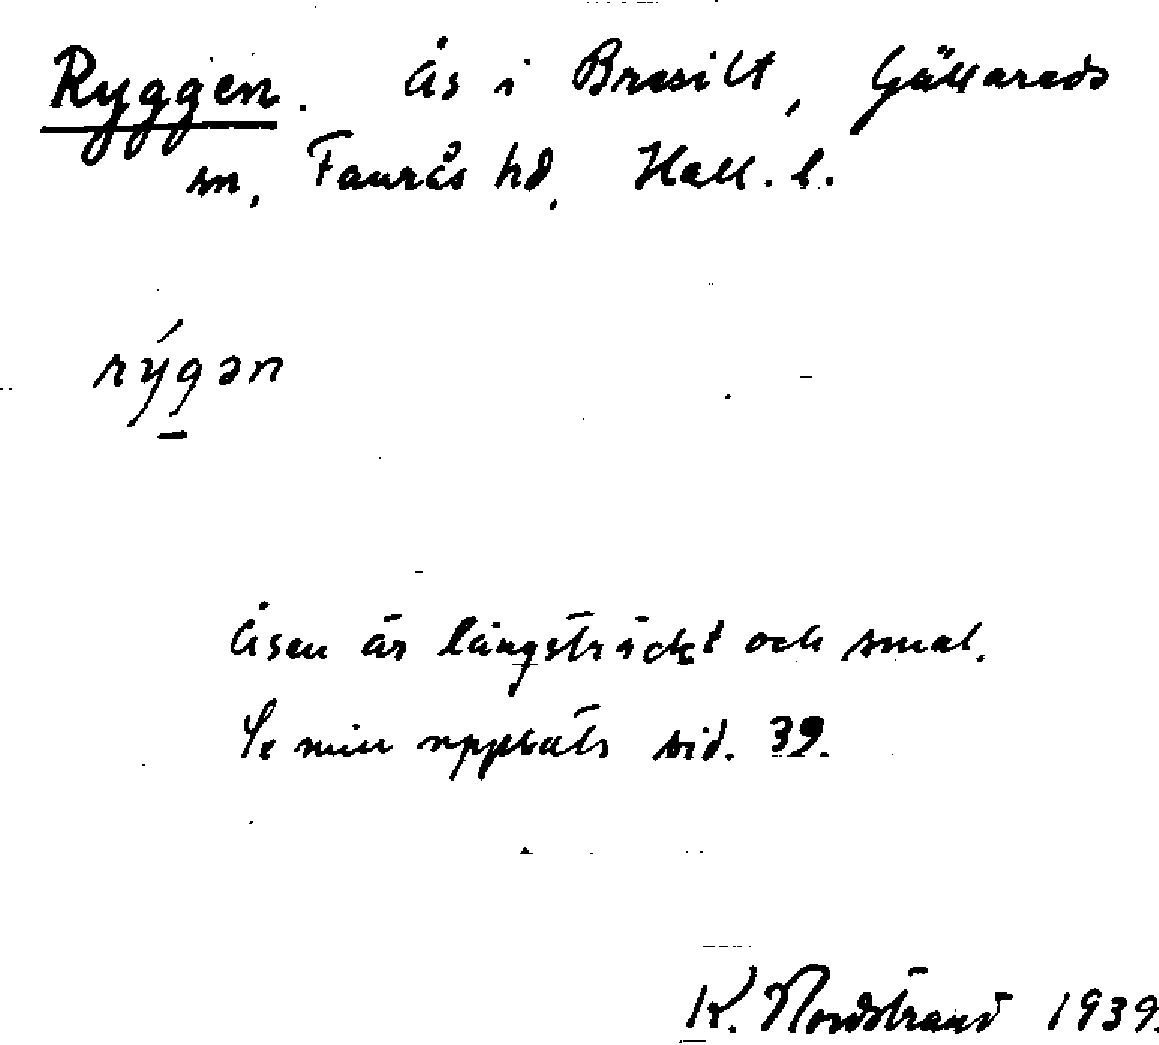 Ryggen. Ås i Bresilt, Gällareds
sn, Faurås hd, Hall. l.
rýgən
Åsen är långsträckt och smal.
Se min uppsats sid. 39.
K. Nordstrand 1939.